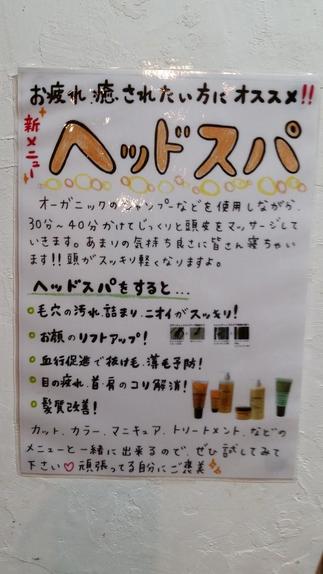 お疲れ、癒されたい方にオススメ!!
新メニュー
ヘッドスパ
オーガニックのシャンプーなどを使用しながら、
30分～40分かけてじっくりと頭皮をマッサージして
いきます。あまりの気持ち良さに皆さん寝ちゃい
ます!!頭がスッキリ軽くなりますよ。
ヘッドスパをすると...
毛穴の汚れ、詰まり、ニオイがスッキリ!
お顔のリフトアップ!
血行促進で抜け毛、薄毛予防!
目の疲れ、首・肩のコリ解消!
髪質改善!
カット、カラー、マニキュア、トリートメント、などの
メニューと一緒に出来るので、ぜひ試してみて
下さい♡頑張ってる自分にご褒美